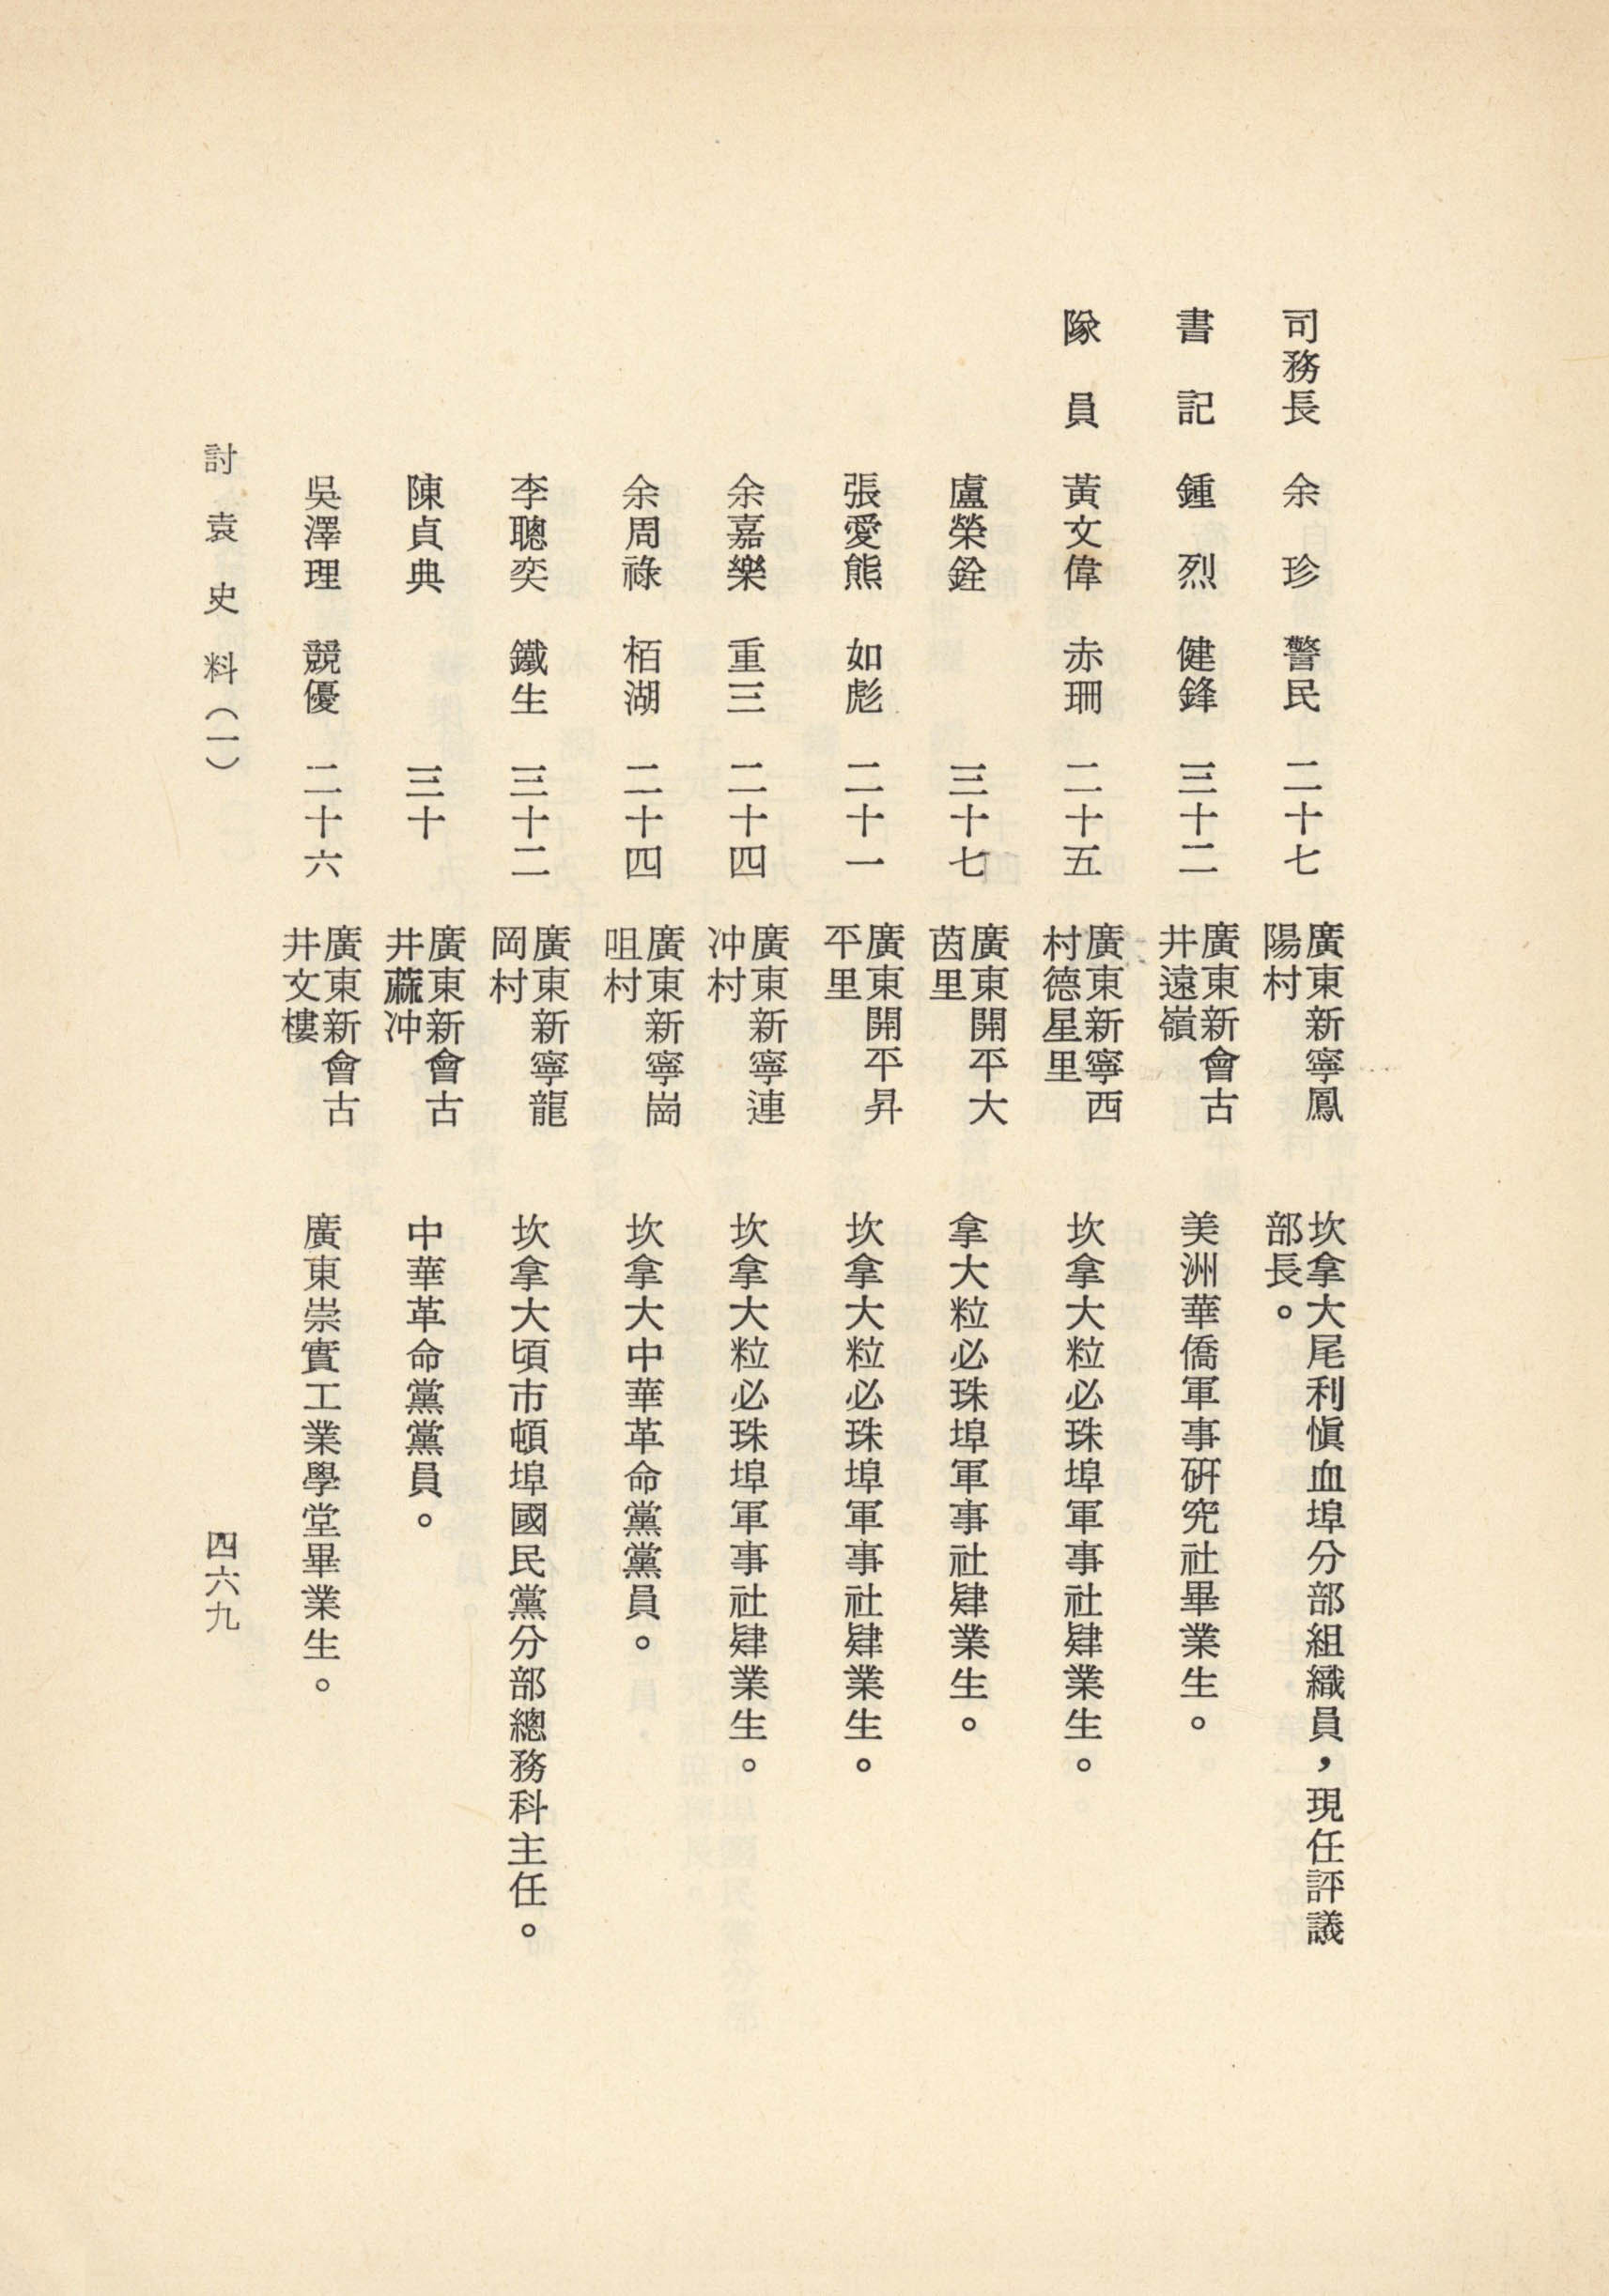 司務長　余　珍　警民　二十七　廣東新寧鳳陽村　坎拿大尾利愼血埠分部組織員，現任評議部長。
書　記　鍾　烈　健鋒　三十二　廣東新會古井遠嶺　美洲華僑軍事硏究社畢業生。
隊　員　黃文偉　赤珊　二十五　廣東新寧西村德星里　坎拿大粒必珠埠軍事社肄業生。
盧榮銓　三十七　廣東開平大茵里　拿大粒必珠埠軍事社肄業生。
張愛熊　如彪　二十一　廣東開平昇平里　坎拿大粒必珠埠軍事社肄業生。
余嘉樂　重三　二十四　廣東新寧連冲村　坎拿大粒必珠埠軍事社肄業生。
余周祿　栢湖　二十四　廣東新寧崗咀村　坎拿大中華革命黨黨員。
李聰奕　鐵生　三十二　廣東新寧龍岡村　坎拿大頃市頓埠國民黨分部總務科主任。
陳貞典　三十　廣東新會古井蘢冲　中華革命黨黨員。
吳澤理　競優　二十六　廣東新會古井文樓　廣東崇實工業學堂畢業生。
討袁史料（一）
四六九